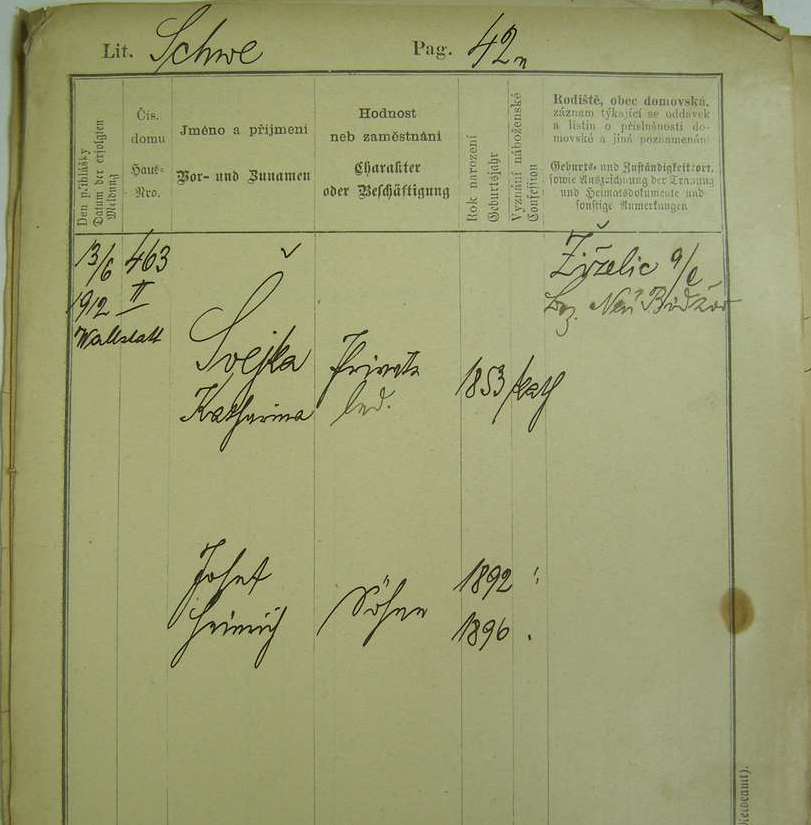 Lit. Schwe Pag. 42
Den přihlášky
Datum der erfolgten
Meldung
Čís.
domu
Haus-
Nro.
Jméno a příjmení
Vor- und Zunamen
Hodnost
neb zaměstnání
Charakter
oder Beschäftigung
Rok narození
Geburtsjahr
Vyznání náboženské
Confession
Rodiště, obec domovská,
záznam týkající se oddavek
a listin o příslušnosti do-
movské a jiná poznamenání
Geburts- und Zuständigkeitsort,
sowie Aufzeichnung der Trauung
und Heimatsdokumente und
sonstige Anmerkungen
13/6 463
1912 II
Žiželic
Bez. Neu Bidžov
Švejka Private
Katharina led. 1853 kath
Josef 1892
Söhne
Heinrich 1896